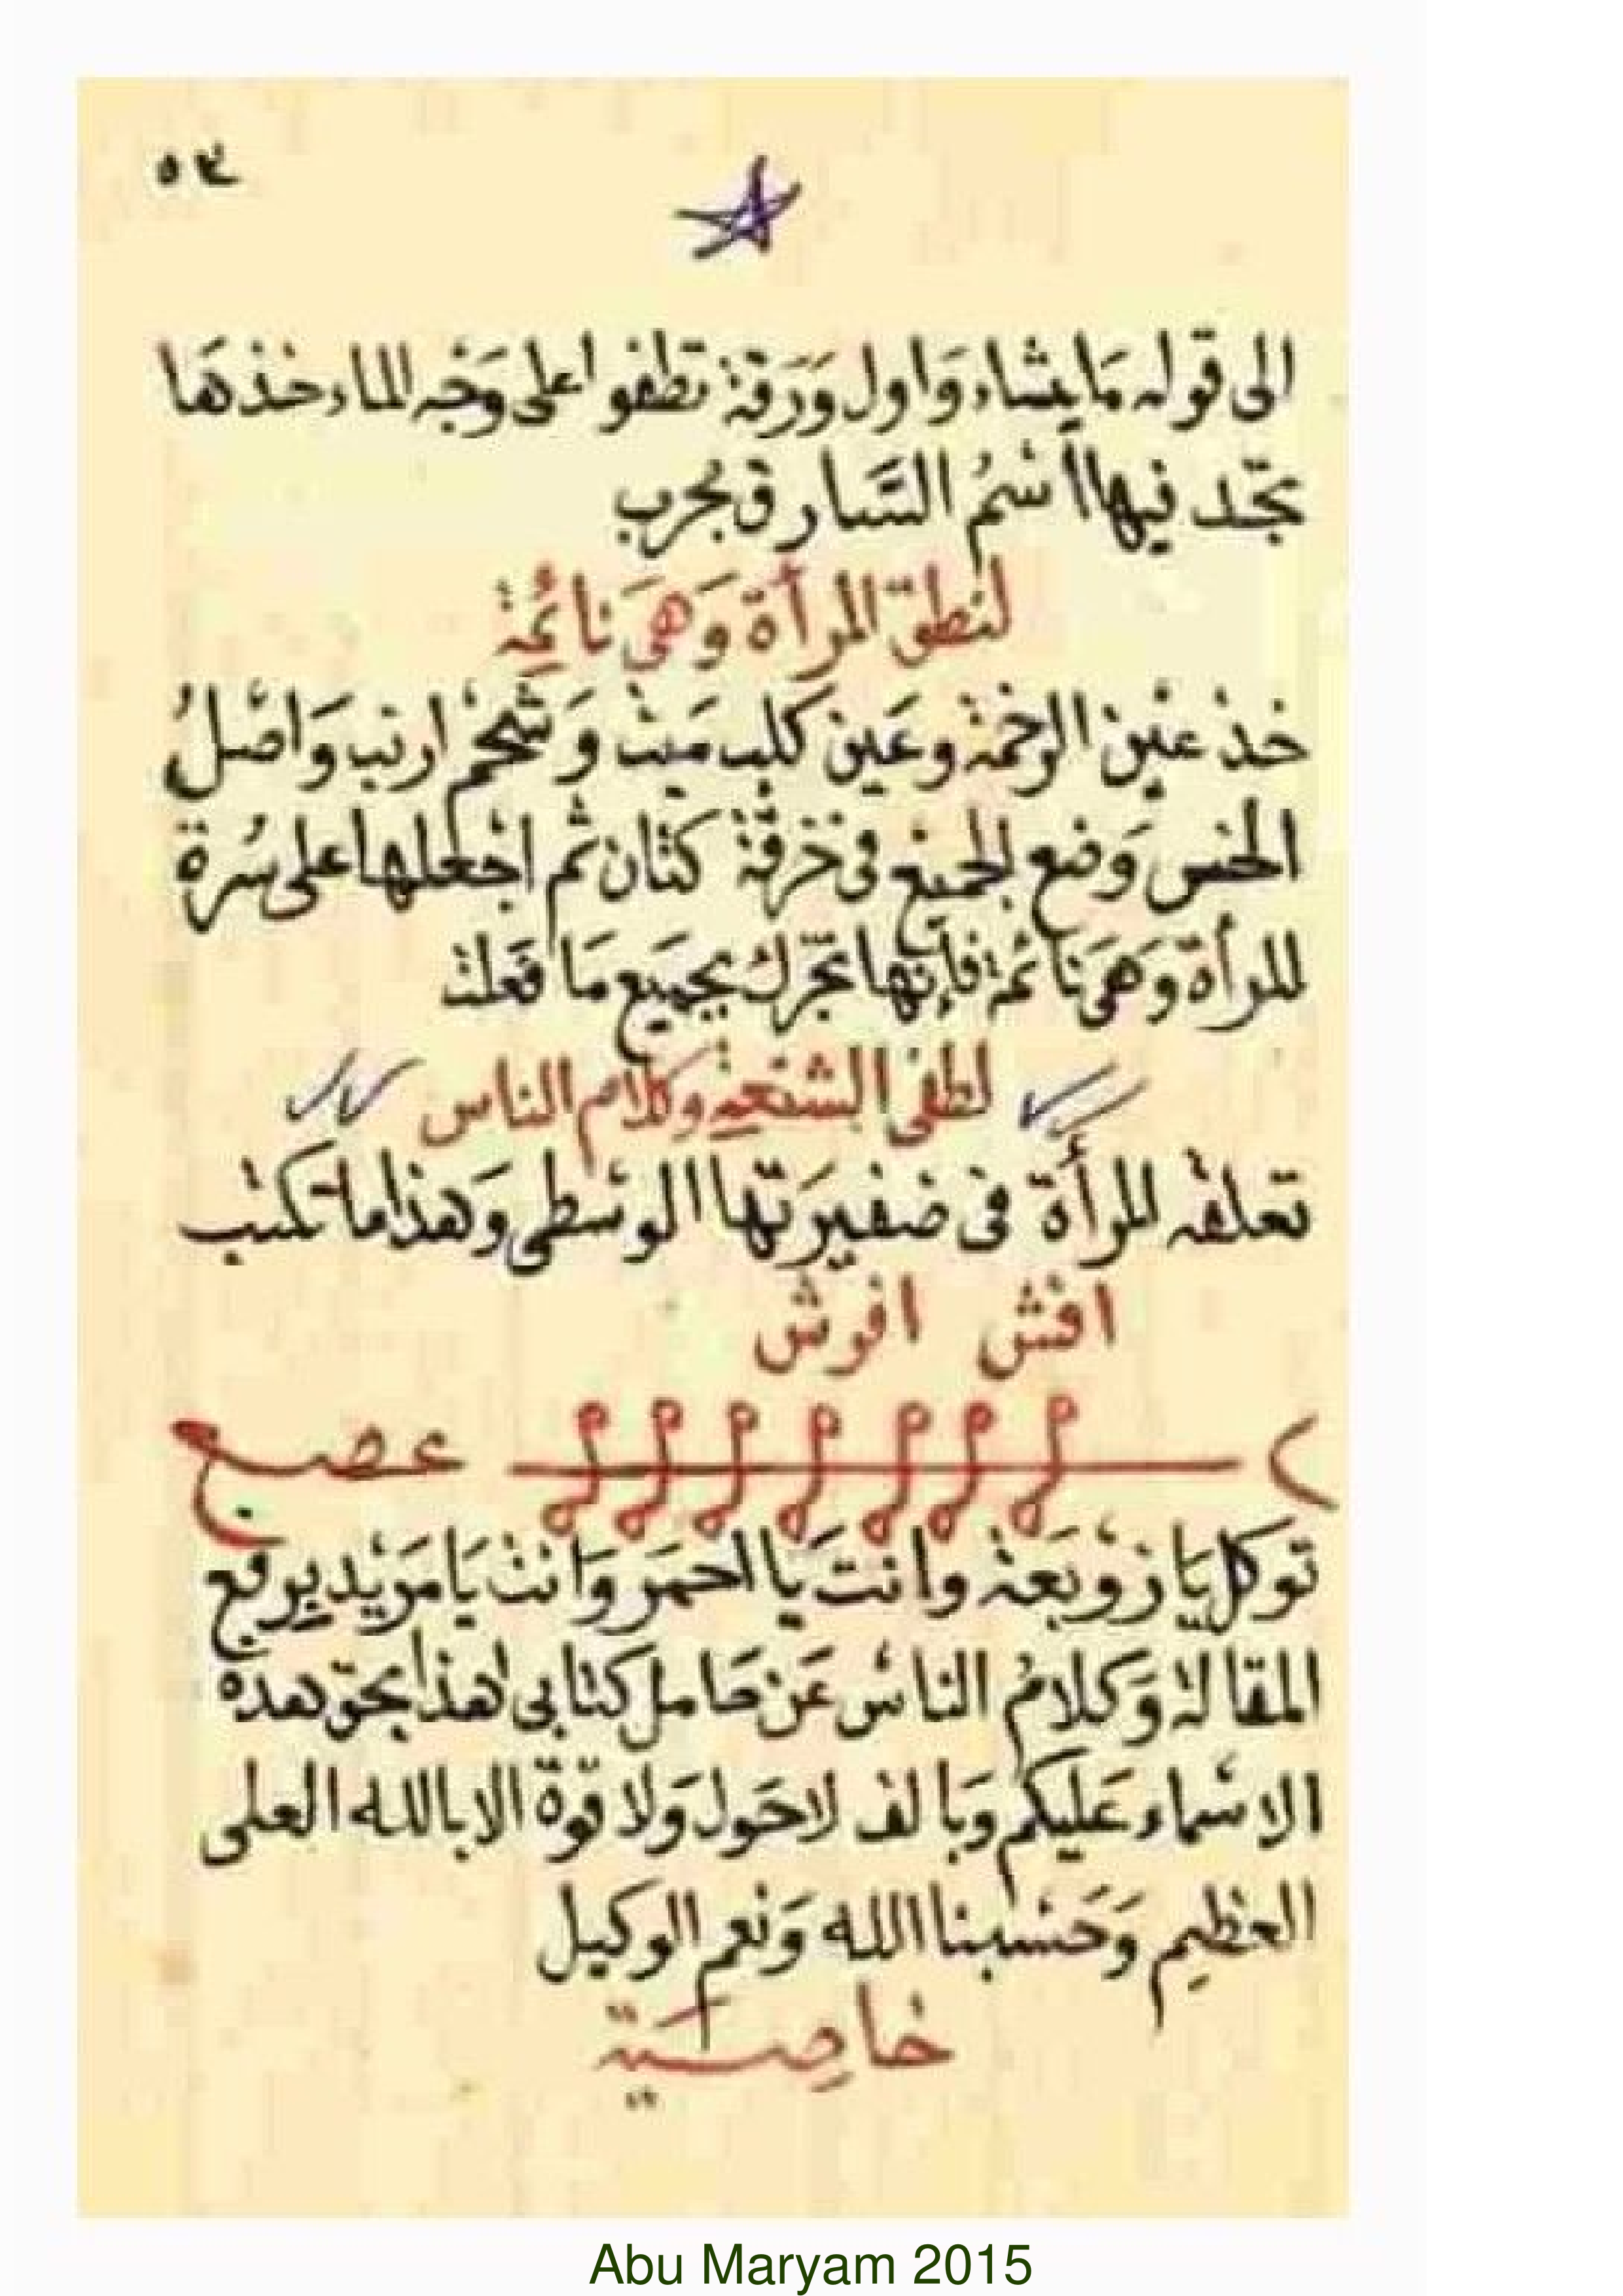 ٥٣
الى قوله مَا يشاء وَاول وَرَقة تطفوا على وَجه الماء خذهَا
تجّد فيها اسْمُ السَّارق مجرب
لنطق المرأة وَهى نَائمة
خذ عين الرخمة وعَين كلب مَيت وَشحم ارنب وَاصْلُ
الخس وَضع الجميع فى خرقة كتان ثم اجْعلها على سُرة
المرأة وَهى نَائمة فإنها تخبرك بجميع مَا فعلت
لطفى الشنعة وكلام الناس
تعلقه المرأة فى ضفيرَتها الوسْطى وَهذا ما تكتب
افش افوش
عصع
توكل يَا زوبَعة وانت يَا احمَر وَانت يَا مَرَيْد يرفع
المقالة وَكلامُ الناسْ عَن حَامل كتابى هذا بحق هذه
الاسْماء عَليكم وَبالف لا حَول وَلا قوّة الا بالله العلى
العظيم وَحَسْبنا الله وَنعم الوكيل
خاصِيَّة
Abu Maryam 2015